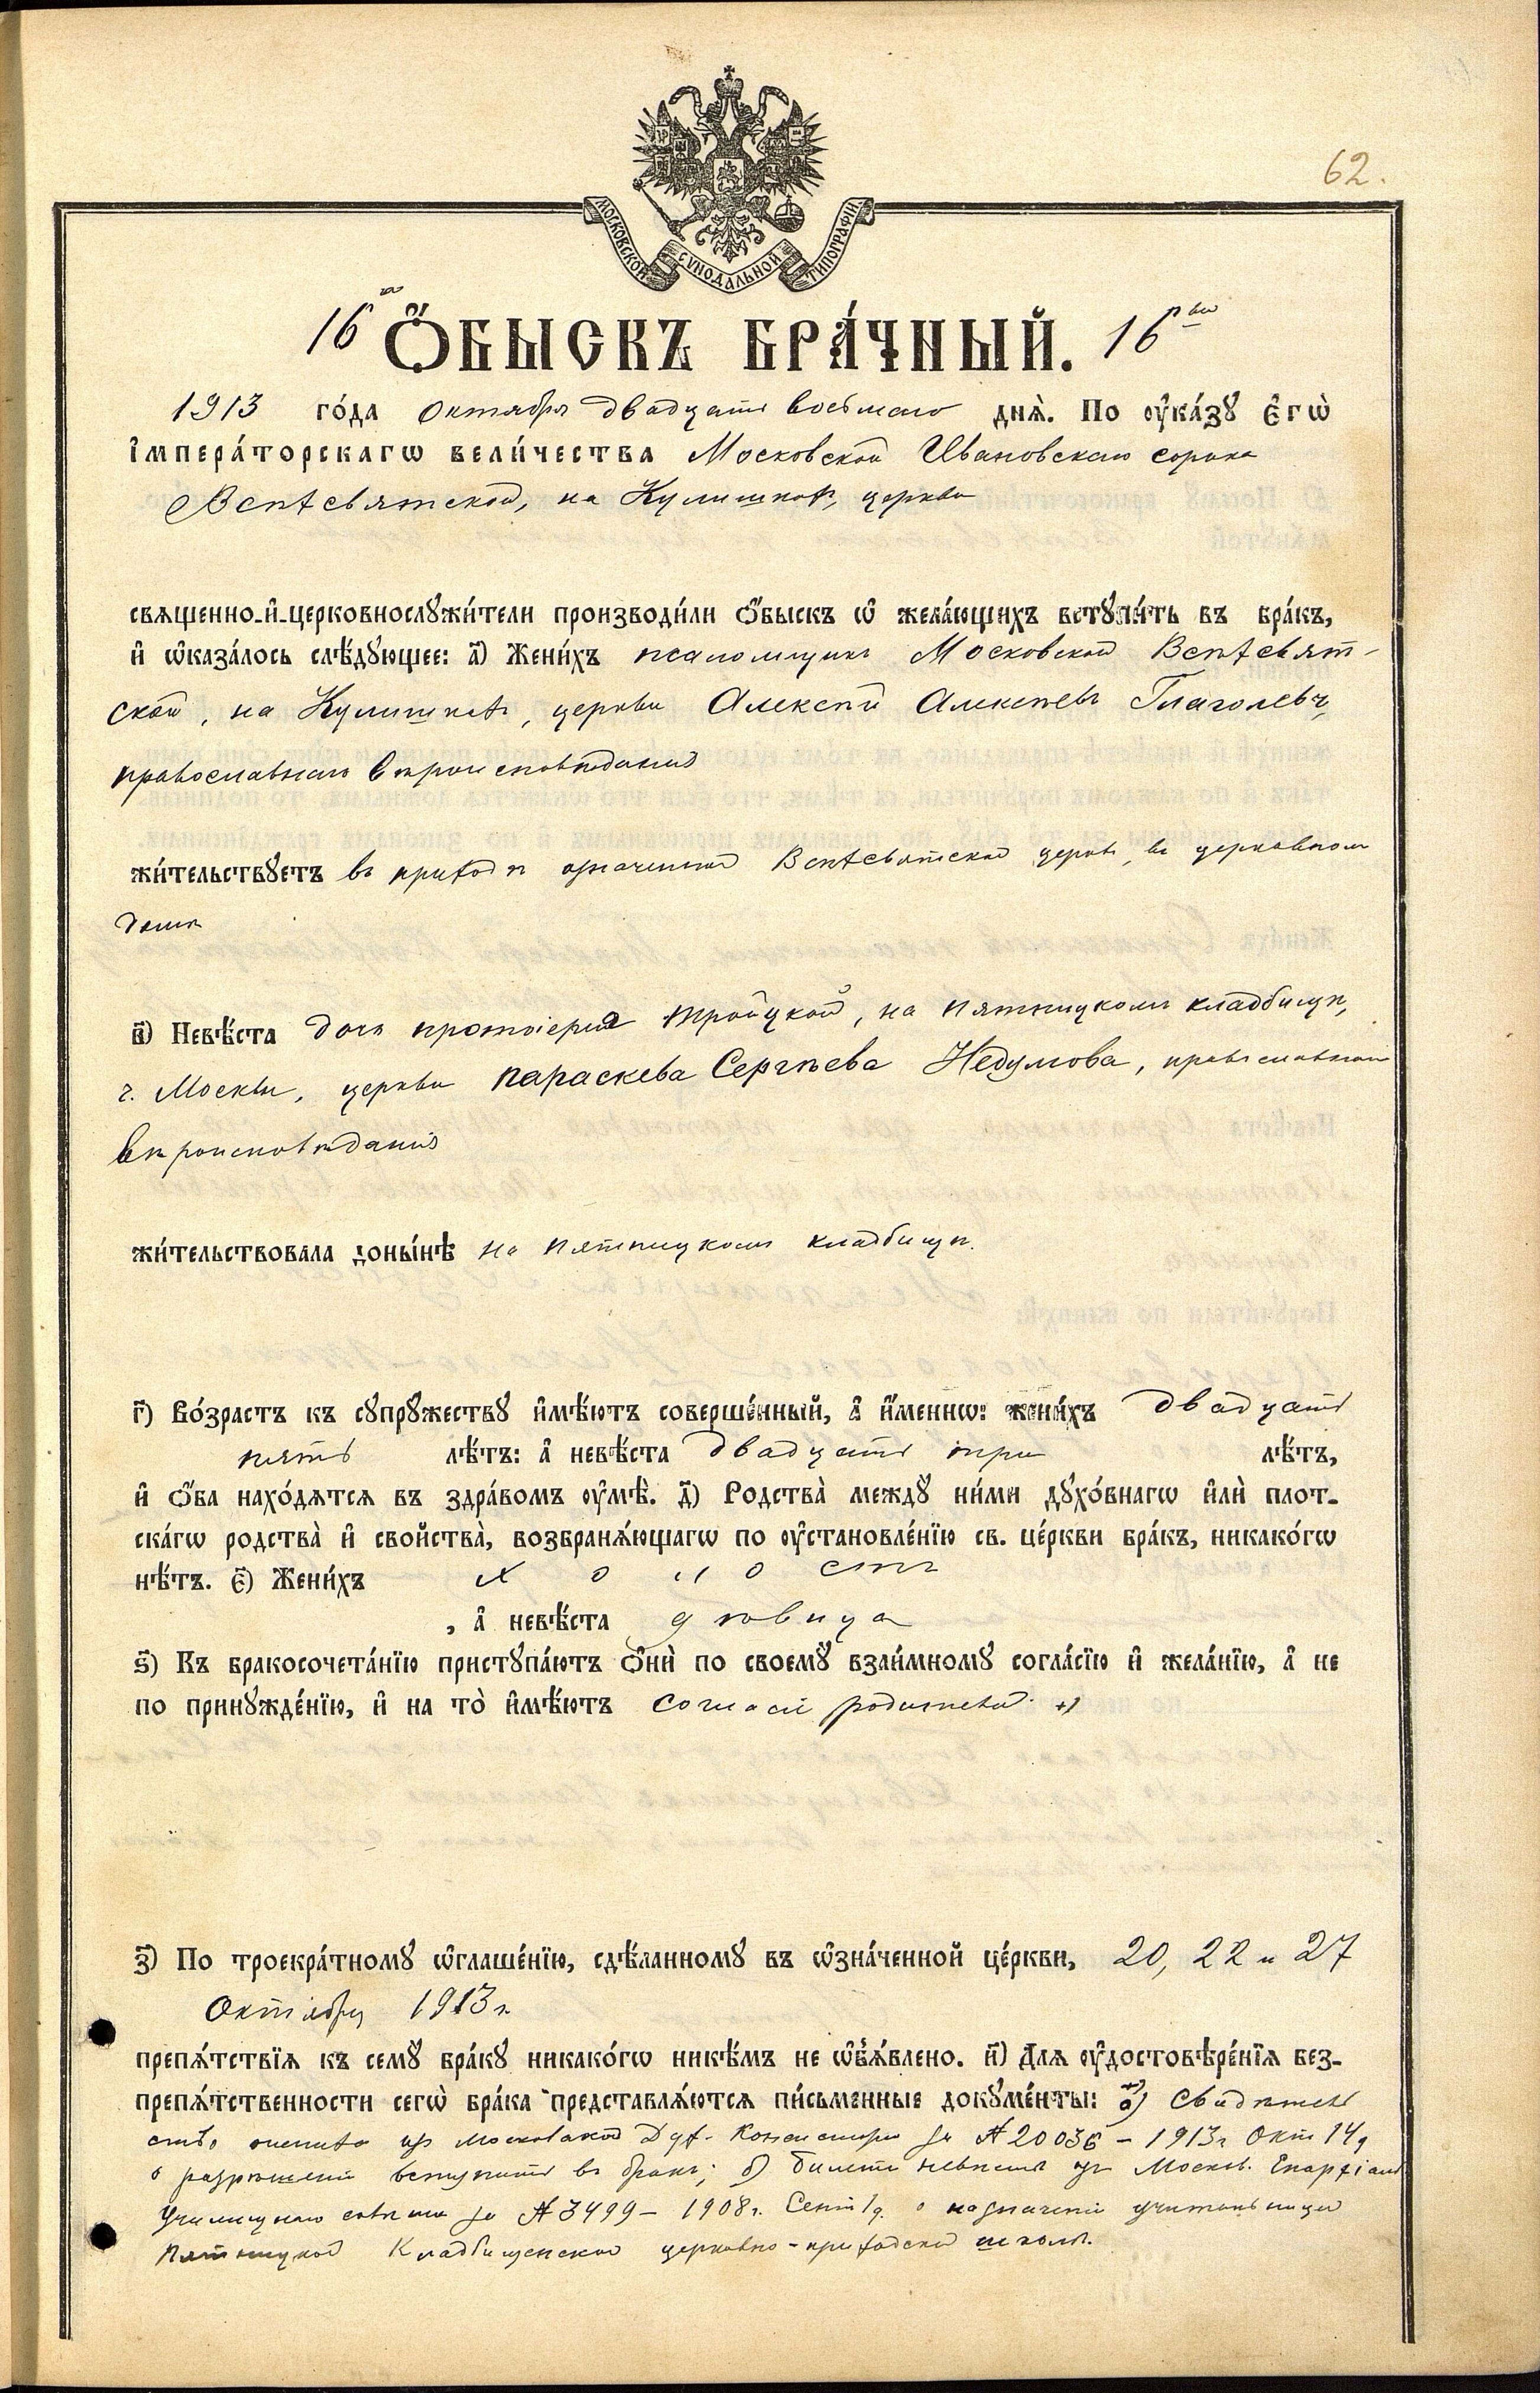 62.
МОСКОВСКОЙ СѴНОДАЛЬНОЙ ТИПОГРАФІИ.
16 ѺБЫСКЪ БРА́ЧНЫЙ. 16
1913 го́да Октября двадцать восьмаго днѧ̀. По оу҆ка́зꙋ Є҆гѡ̀
І҆мпера́торскагѡ вели́чества Московской Ивановскаго сорока
Всѣхсвятской, на Кулишкахъ, церкви
свѧщенно-и҆-церковнослꙋжи́тели производи́ли ѻ҆́быскъ ѡ҆ жела́ющихъ встꙋпи́ть въ бра́къ,
и҆ ѡ҆каза́лось слѣ́дꙋющее: а҃) Жени́хъ псаломщикъ Московской Всѣхсвят-
ской, на Кулишкахъ, церкви Алексѣй Алексѣевъ Глаголевъ,
православнаго вѣроисповѣданія
жи́тельствꙋетъ въ приходѣ означенной Всѣхсвятской церкви, въ церковномъ
домѣ
в҃) Невѣ́ста дочь протоіерея Троицкой, на Пятницкомъ кладбищѣ,
г. Москвы, церкви Параскева Сергѣева Недумова, православнаго
вѣроисповѣданія
жи́тельствовала доны́нѣ на Пятницкомъ кладбищѣ.
г҃) Во́зрастъ къ сꙋпрꙋжествꙋ и҆мѣ́ютъ соверше́нный, а҆ и҆́меннѡ: жени́хъ двадцать
пять лѣ́тъ: а҆ невѣ́ста двадцать три лѣ́тъ,
и҆ ѻ҆́ба нахо́дѧтсѧ въ здра́вомъ оу҆мѣ̀. д҃) Родства̀ междꙋ ни́ми дꙋхо́внагѡ и҆лѝ плот-
ска́гѡ родства̀ и҆ свойства̀, возбранѧ́ющагѡ по оу҆становле́нїю св. це́ркви бра́къ, никако́гѡ
нѣ́тъ. є҃) Жени́хъ холостъ
, а҆ невѣ́ста дѣвица
ѕ҃) Къ бракосочета́нїю пристꙋпа́ютъ ѻ҆нѝ по своемꙋ̀ взаи́мномꙋ согла́сїю и҆ жела́нїю, а҆ не
по принꙋжде́нїю, и҆ на то̀ и҆мѣ́ютъ согласіе родителей.
з҃) По троекра́тномꙋ ѡ҆глаше́нїю, сдѣ́ланномꙋ въ ѡ҆зна́ченной це́ркви, 20, 22 и 27
Октября 1913 г.
препѧ́тствїѧ къ семꙋ̀ бра́кꙋ никако́гѡ никѣ́мъ не ѡ҆б̾ѧ́влено. и҃) Длѧ оу҆достовѣре́нїѧ без-
препѧ́тственности сегѡ̀ бра́ка представлѧ́ютсѧ пи́сьменные докꙋме́нты: а) Свидѣтель
ство жениха изъ Московской Дух. Консисторіи за № 20036 – 1913 г Окт 14 д
о разрѣшеніи вступить въ бракъ; б) билетъ невѣсты изъ Москов. Епархіальн
Училищнаго совѣта за № 3499 – 1908 г. Сент 1 д. о назначеніи учительницей
Пятницкой Кладбищенской церковно-приходской школы.